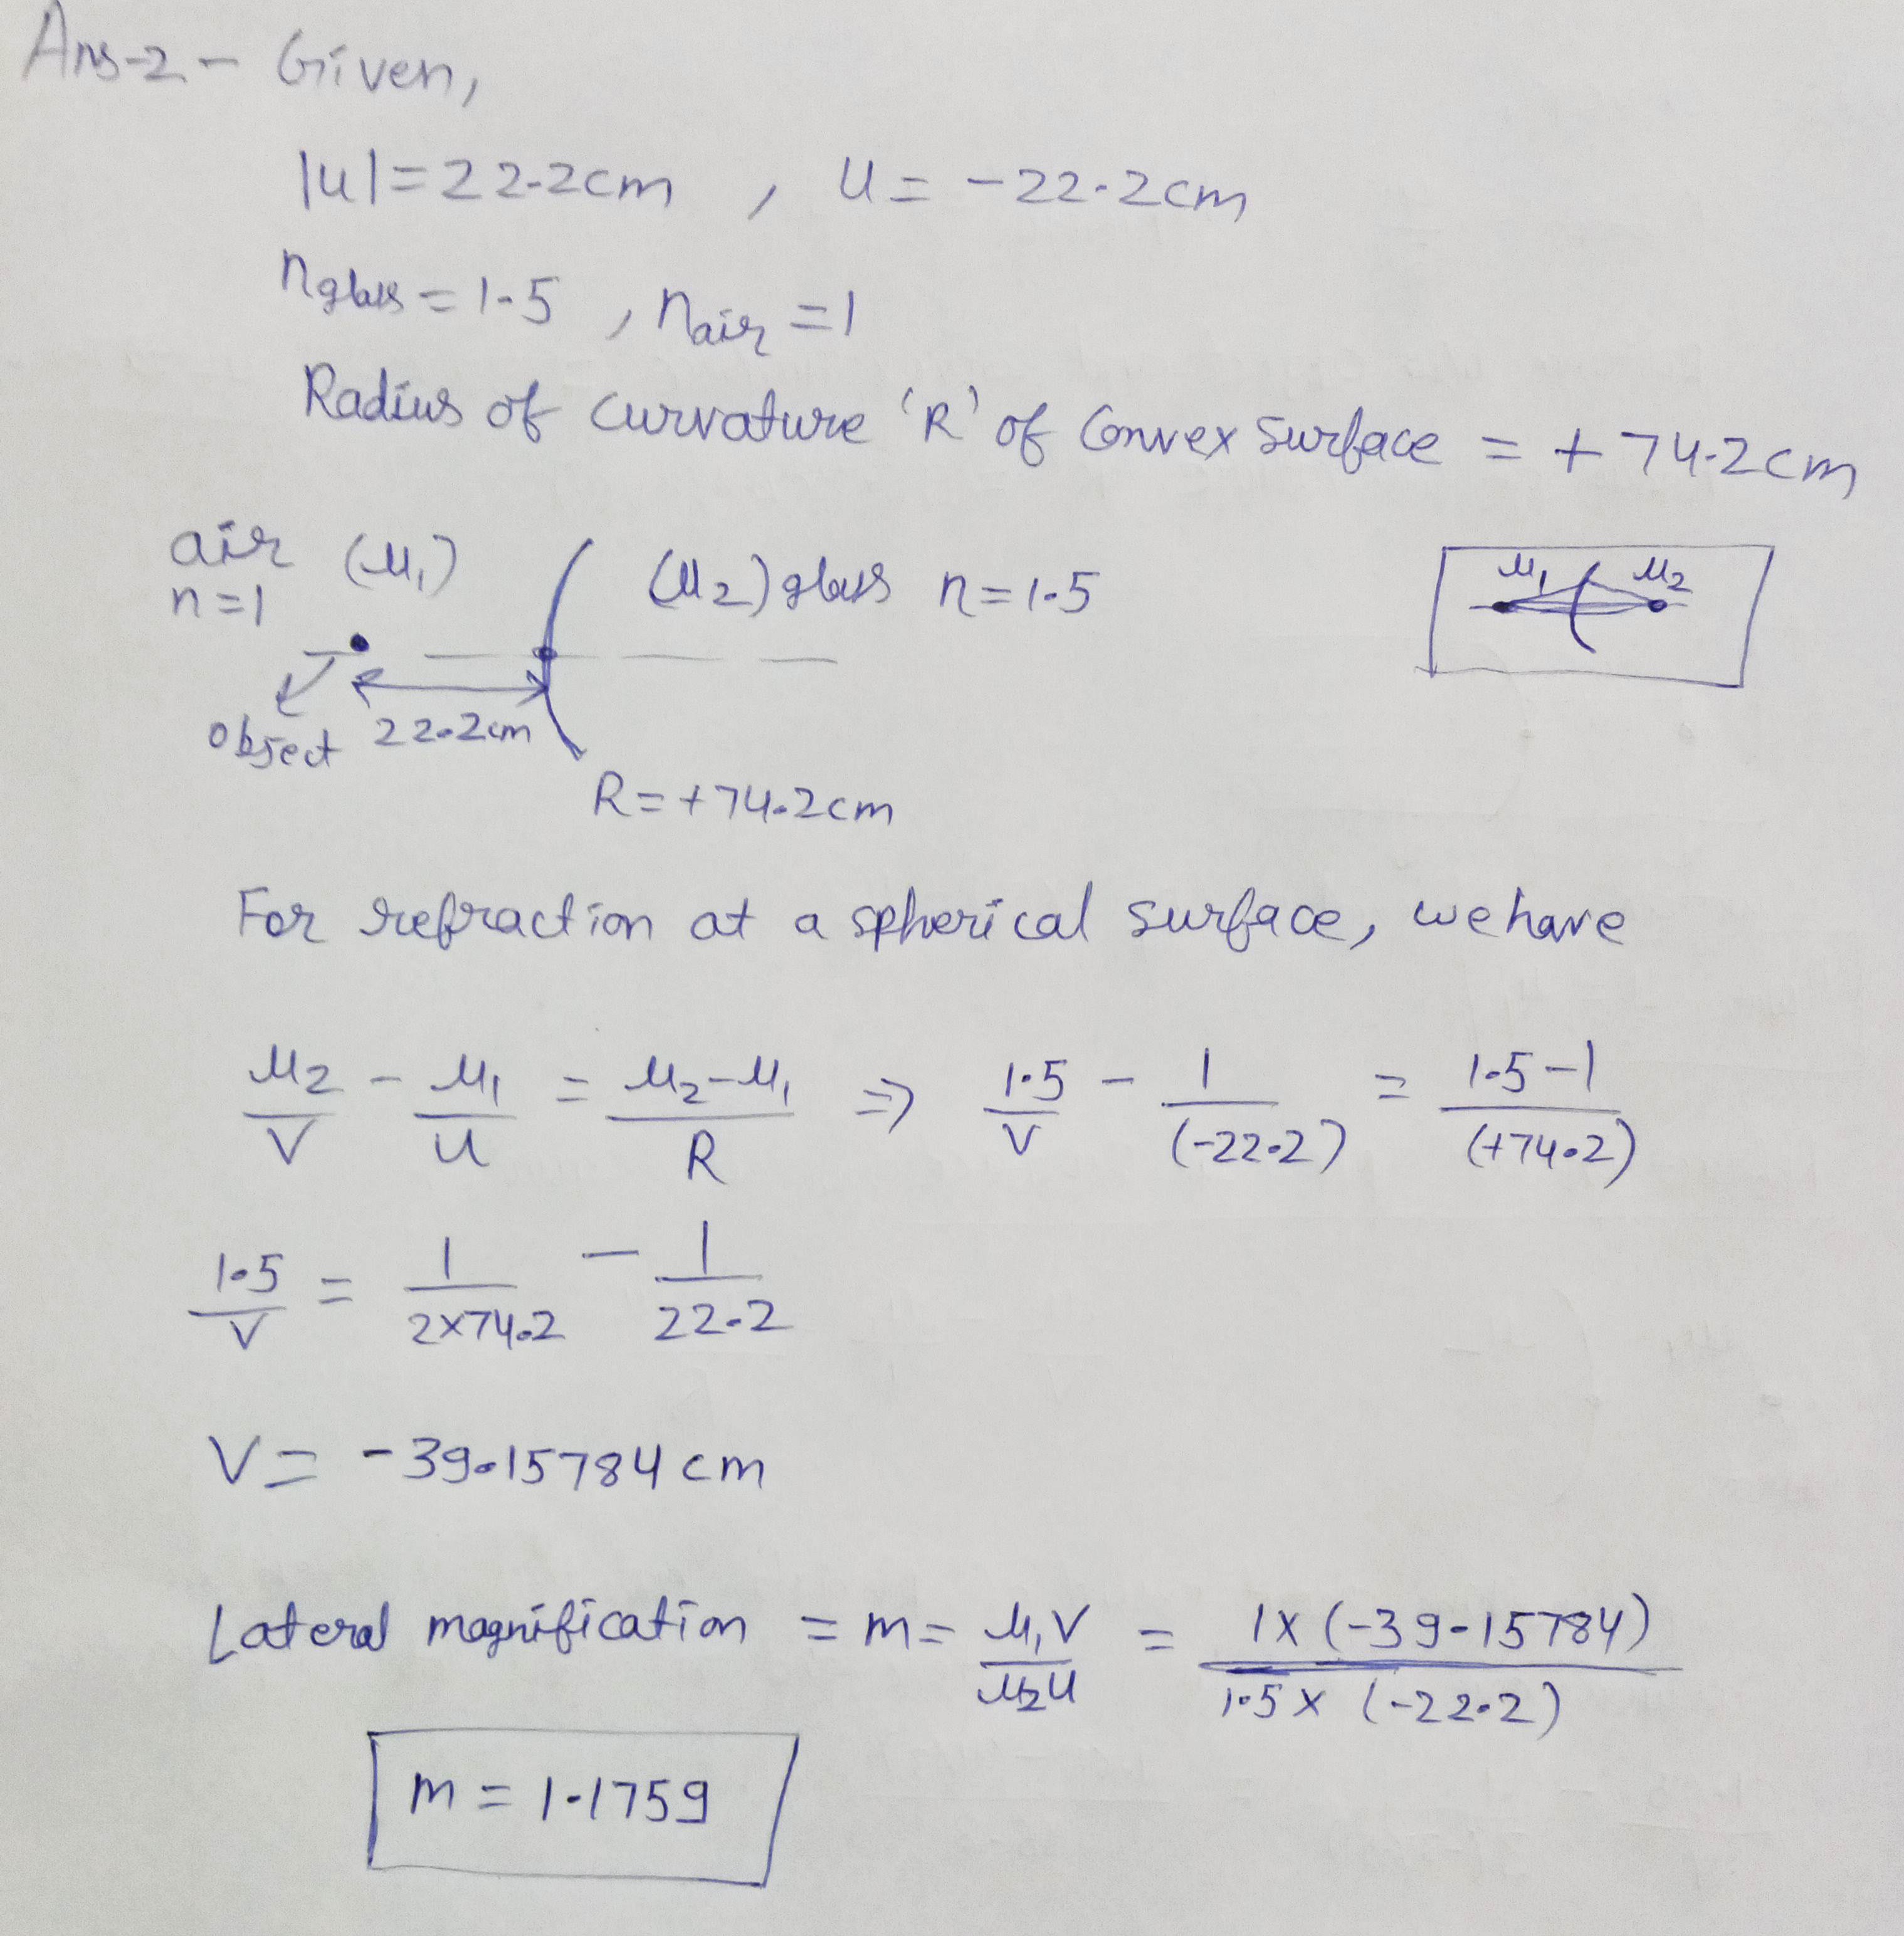 Ans-2- Given,
|u|=22.2cm , u = -22.2cm
nglass = 1.5 , nair = 1
Radius of curvature 'R' of Convex surface = +74.2cm
air (μ1) (μ2) glass n=1.5
n=1
μ1 μ2
object 22.2cm
R=+74.2cm
For refraction at a spherical surface, we have
μ2/V - μ1/u = μ2-μ1/R => 1.5/V - 1/(-22.2) = 1.5-1/(+74.2)
1.5/V = 1/2×74.2 - 1/22.2
V = -39.15784 cm
Lateral magnification = m = μ1V/μ2u = 1×(-39.15784)/1.5×(-22.2)
m = 1.1759